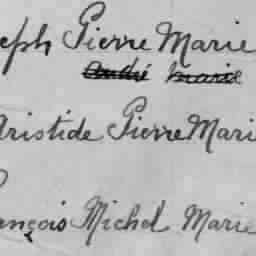 eph Pierre Marie
André Marie
Aristide Pierre Mari
ançois Michel Marie